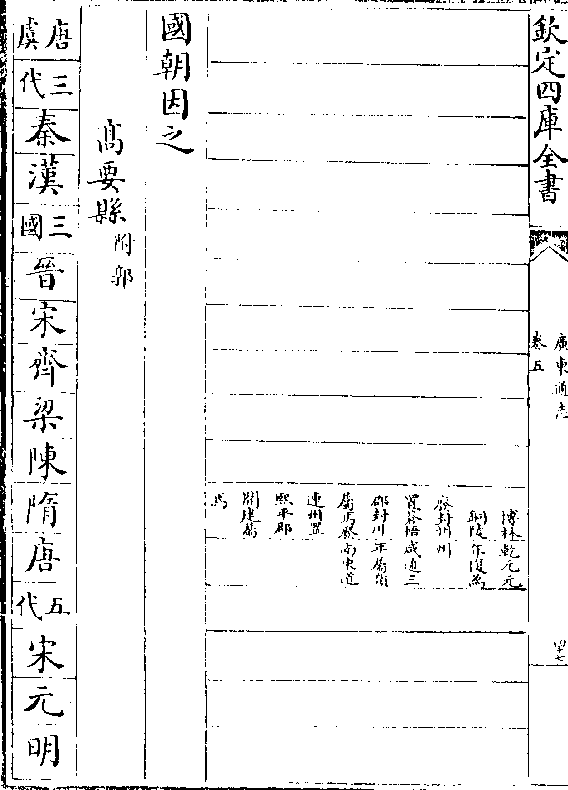 欽定四庫全書
廣東通志
卷五
四七
博林乾元元
銅陵年復為
廢封州州
置蒼梧咸通三
郡封川年屬嶺
屬焉廢南東道
連州置
熙平郡
開建屬
焉
國朝因之
高要縣附郭
唐虞
三代
秦
漢
三國
晉
宋
齊
梁
陳
隋
唐
五代
宋
元
明